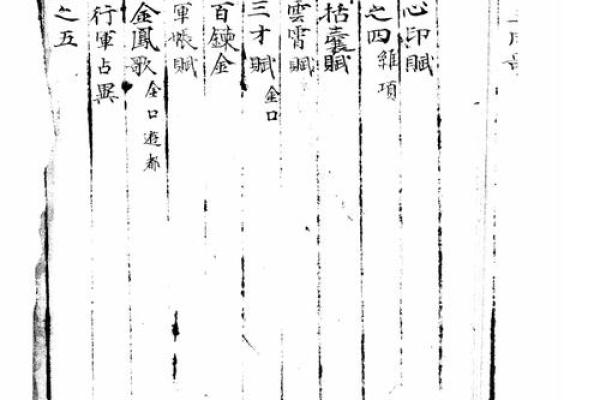 心印賦
之四雜項
括囊賦
雲霄賦
三才賦金口
百鍊金
軍帳賦
金鳳歌金口遊都
行軍占異
之五